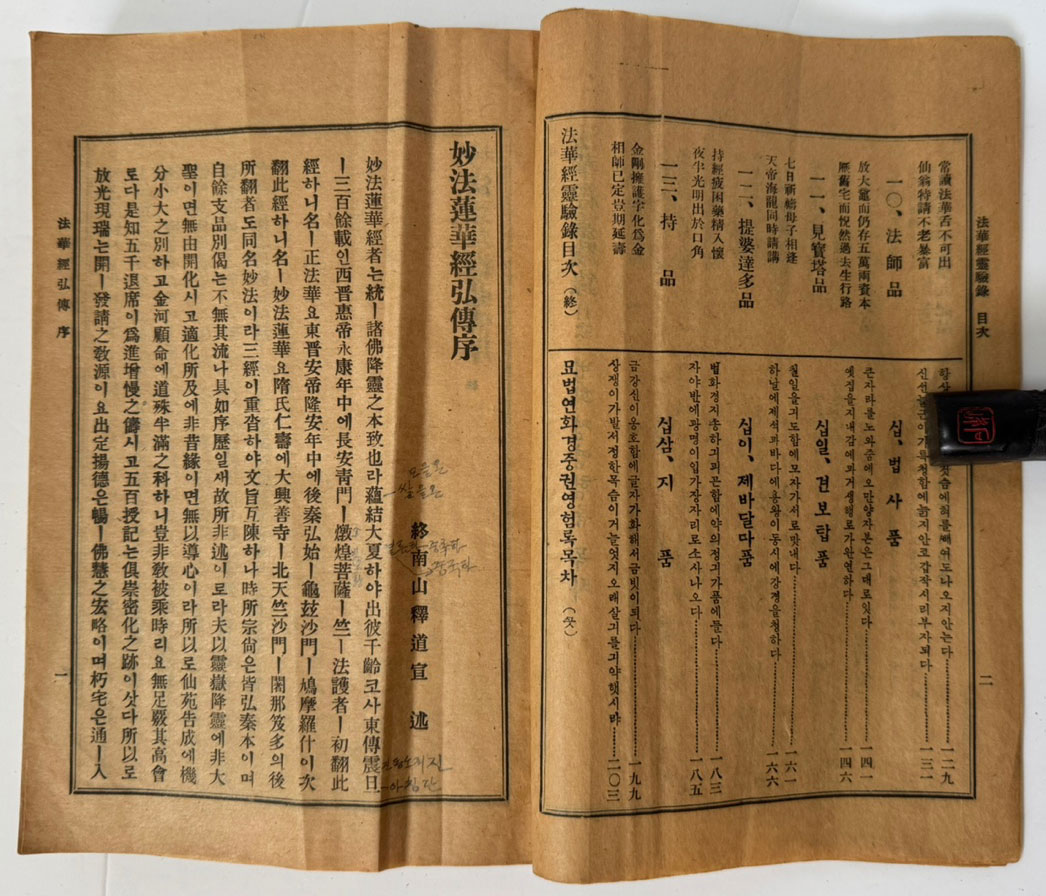 法華經靈驗錄 目次
二
常讀法華舌不可出
仙翁特請不老暴富
一〇、法師品
放大鼇而仍存五萬兩資本
歷舊宅而恍然過去生行路
一一、見寶塔品
七日祈禱母子相逢
天帝海龍同時請講
一二、提婆達多品
持經疲困藥精入懷
夜半光明出於口角
一三、持 品
金剛擁護字化爲金
相師已定豈期延壽
法華經靈驗錄目次(終)
것슴에혀를빼여도나오지안는다 一二九
신선 특청함에늙지안코갑작시리부자되다 一三一
십、법사품
큰자라를노와줌에오만양자본은그대로잇다 一四一
옛집을지내감에과거생행로가완연하다 一四六
십일、견보탑품
칠일을긔도함에모자가서로맛내다 一六一
하날에제석과바다에용왕이동시에강경을청하다 一六六
십이、제바달다품
법화경지송하긔피곤함에약의정긔가품에들다 一八三
자야반에광명이입가장자리로소사나오다 一八五
십삼、지 품
금강신이옹호함에글자가화해서금빗이되다 一九九
상쟁이가발서정한목슴이거늘엇지오래살긔를긔약햇시랴 二〇三
묘법연화경중권영험록목차(끗)
妙法蓮華經弘傳序
終南山釋道宣 述
妙法蓮華經者는統ㅡ諸佛降靈之本致也라蘊結大夏하야出彼千齡코사東傳震旦
ㅡ三百餘載인西晋惠帝永康年中에長安靑門ㅡ燉煌菩薩ㅡ竺ㅡ法護者ㅡ初翻此
經하니名ㅡ正法華요東晋安帝隆安年中에後秦弘始ㅡ龜玆沙門ㅡ鳩摩羅什이次
翻此經하니名ㅡ妙法蓮華요隋氏仁壽에大興善寺ㅡ北天竺沙門ㅡ闍那笈多의後
所翻者도同名妙法이라三經이重沓하야文旨互陳하나時所宗尙은皆弘秦本이며
自餘支品別偈는不無其流나具如序歷일새故所非述이로라夫以靈嶽降靈에非大
聖이면無由開化시고適化所及에非昔緣이면無以導心이라所以로仙苑告成에機
分小大之別하고金河顧命에道殊半滿之科하니豈非敎被乘時리요無足覈其高會
로다是知五千退席이爲進增慢之儔시고五百授記는俱崇密化之跡이삿다所以로
放光現瑞는開ㅡ發請之敎源이요出定揚德은暢ㅡ佛慧之宏略이며朽宅은通ㅡ入
法華經弘傳序
一